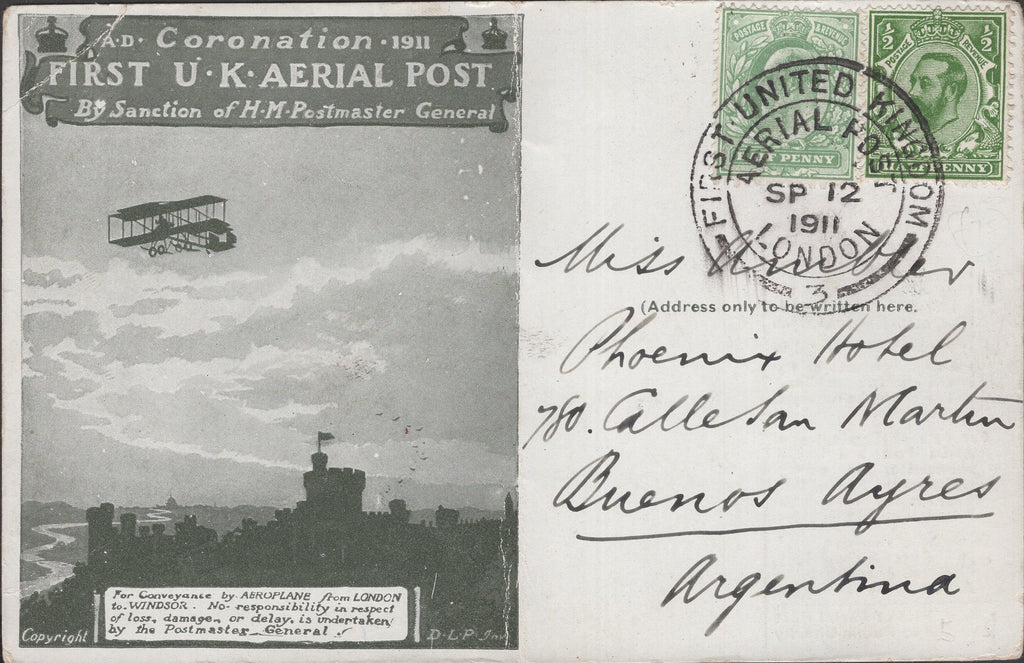 A·D· Coronation · 1911
FIRST U·K·AERIAL POST
By Sanction of H·M·Postmaster General
For Conveyance by AEROPLANE from LONDON
to WINDSOR. No responsibility in respect
of loss, damage, or delay, is undertaken
by the Postmaster General.
Copyright
D·L·P Inv
POSTAGE REVENUE
HALF PENNY
½ POSTAGE REVENUE ½
HALFPENNY
FIRST UNITED KINGDOM
AERIAL POST
SP 12
1911
LONDON
3
Miss
(Address only to be written here.
Phoenix Hotel
780. Calle San Martin
Buenos Ayres
Argentina